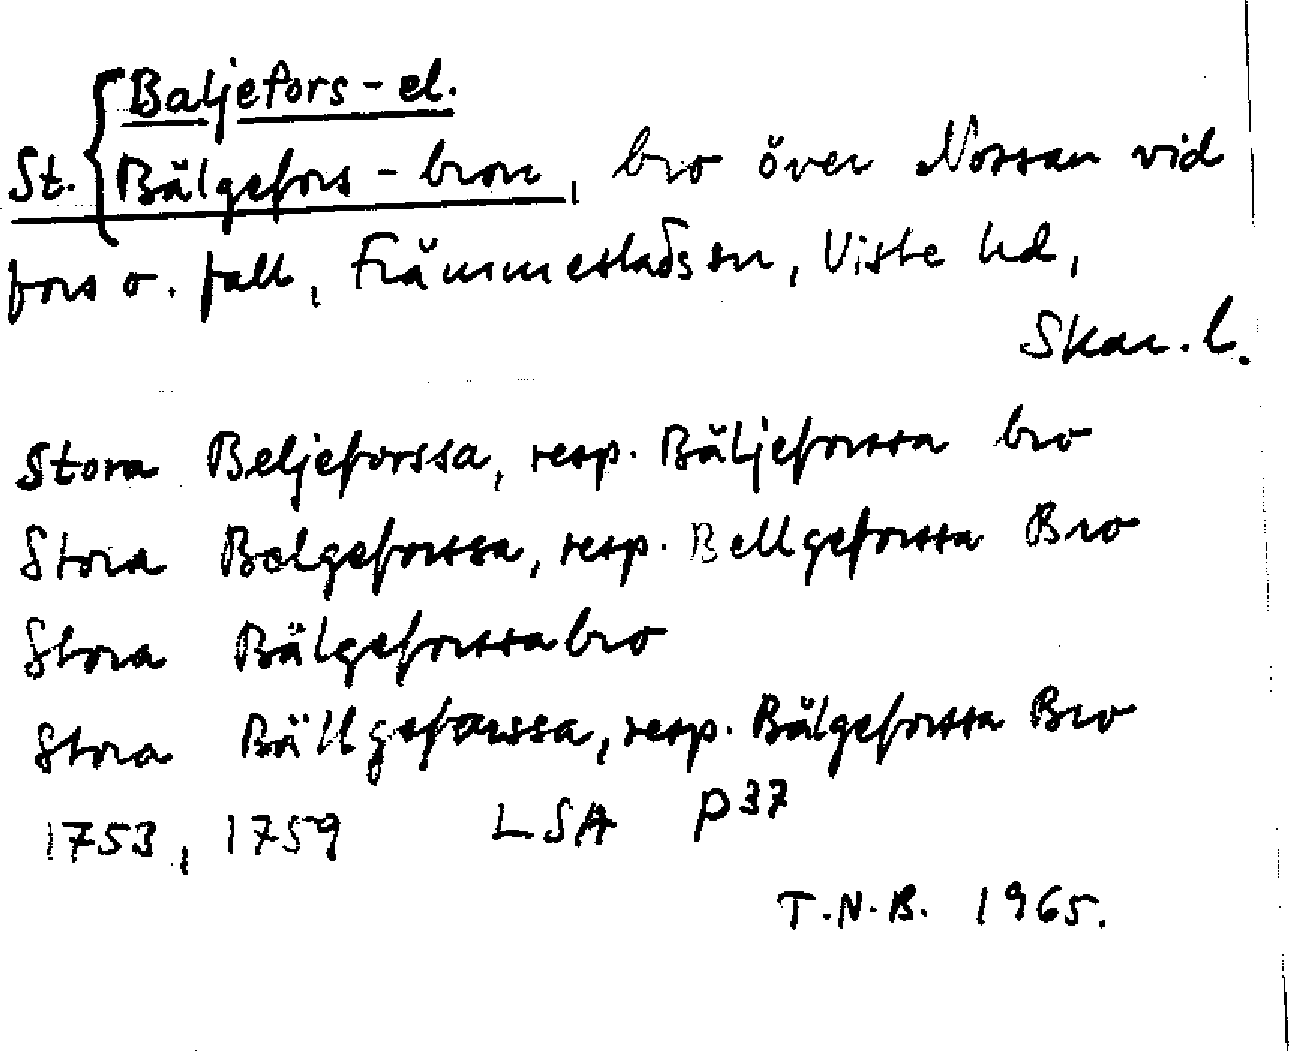 Baljefors - el.
St. Bälgefors - bron, bro över Nossan vid
fors o. fall, Främmestads sn, Viste hd,
Skar. l.
Stora Beljeforssa, resp. Bäljeforssa bro
Stora Belgeforssa, resp. Bellgeforssa Bro
Stora Bälgeforssabro
Stora Bällgeforssa, resp. Bälgeforssa Bro
1753, 1759 LSA P37
T.N.B. 1965.